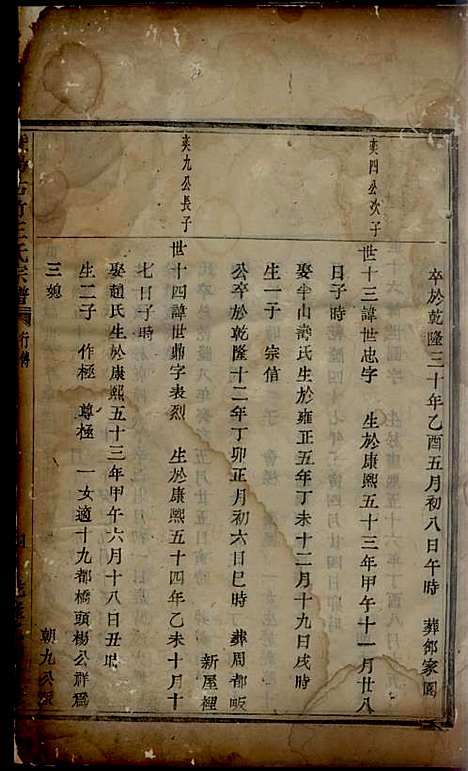 卒於乾隆三十年乙酉五月初八日午時 葬鄒家園
爽四公次子
世十三諱世忠字 生於康熙五十三年甲午十一月廿八
日子時
娶半山壽氏生於雍正五年丁未十二月十九日戌時
生一子 宗信
公卒於乾隆十二年丁卯正月初六日巳時 葬周都畈
新屋裡
爽九公長子
世十四諱世鼎字表烈 生於康熙五十四年乙未十月十
七日子時
娶趙氏生於康熙五十三年甲午六月十八日丑時
生二子 作極 尊極 一女適十九都橋頭楊公群為
三媳
朝九公派
王氏宗譜 行傳